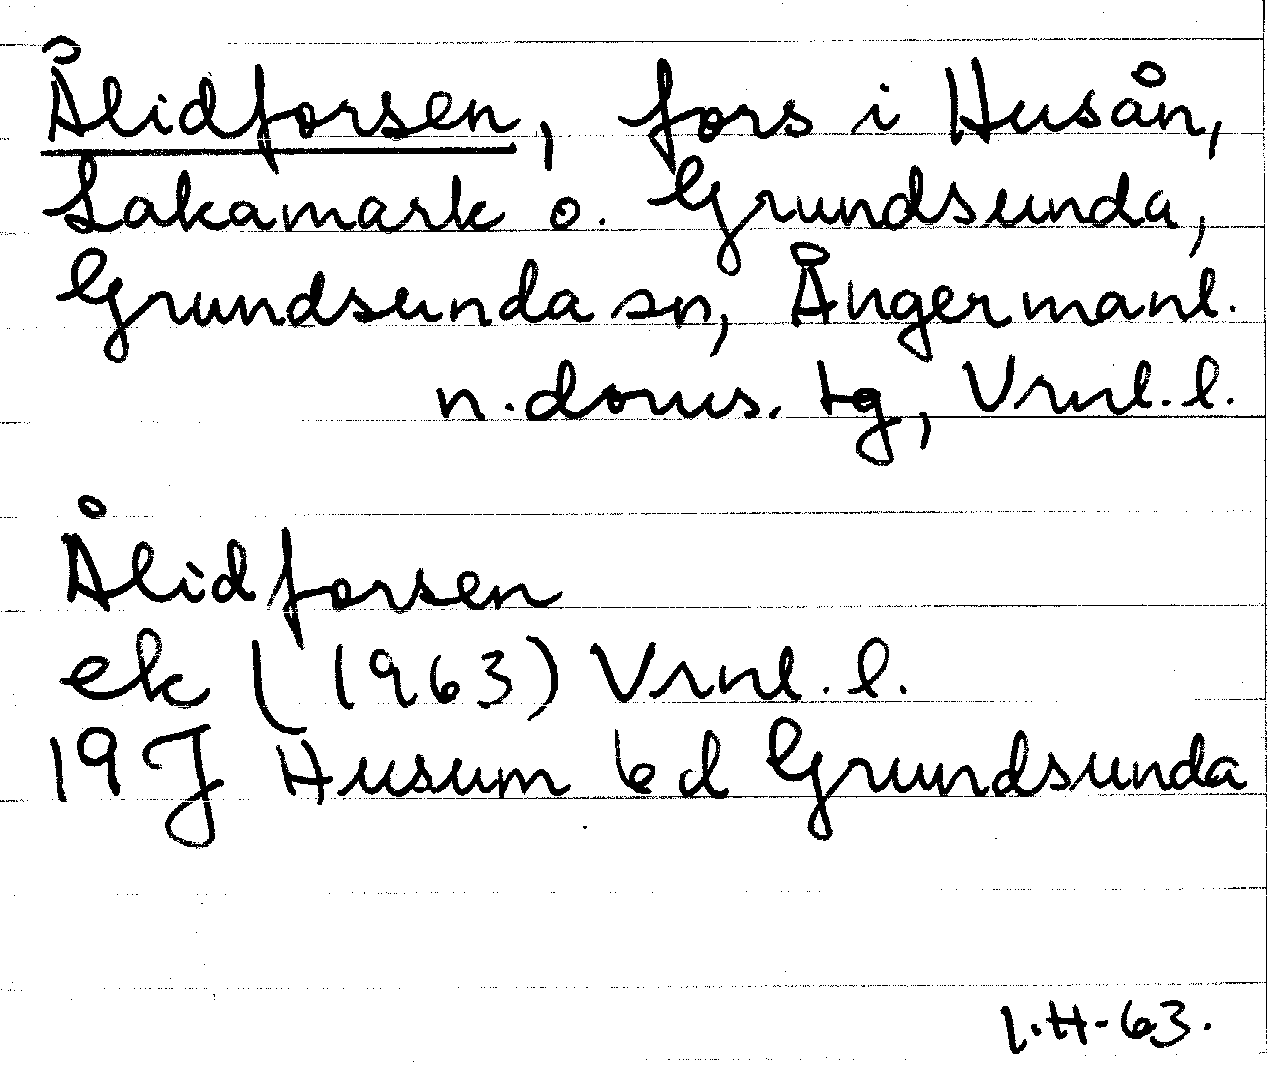 Ålidforsen, fors i Husån,
Lakamark o. Grundsunda,
Grundsunda sn, Ångermanl.
n. doms. tg, Vrnl. l.
Ålidforsen
ek (1963) Vrnl. l.
19J Husum 6d Grundsunda
I.H-63.